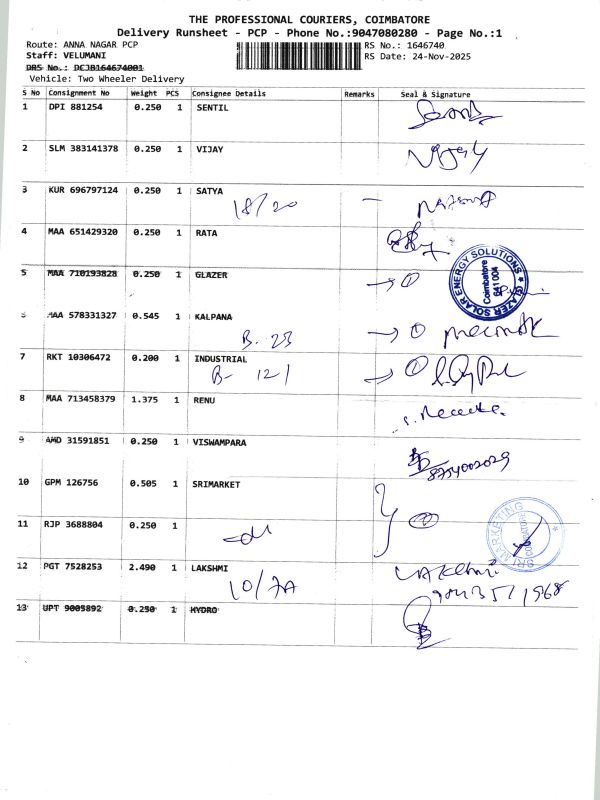 THE PROFESSIONAL COURIERS, COIMBATORE
Delivery Runsheet - PCP - Phone No.:9047080280 - Page No.:1
Route: ANNA NAGAR PCP RS No.: 1646740
Staff: VELUMANI RS Date: 24-Nov-2025
DRS No.: DCJB164674001
Vehicle: Two Wheeler Delivery
S No Consignment No Weight PCS Consignee Details Remarks Seal & Signature
1 DPI 881254 0.250 1 SENTIL
2 SLM 383141378 0.250 1 VIJAY Vijay
3 KUR 696797124 0.250 1 SATYA
18/20
4 MAA 651429320 0.250 1 RATA
5 MAA 710193828 0.250 1 GLAZER
GLAZER SOLAR ENERGY SOLUTIONS Coimbatore 641 004
MAA 578331327 0.545 1 KALPANA
B. 23
7 RKT 10306472 0.200 1 INDUSTRIAL
B- 121
8 MAA 713458379 1.375 1 RENU
9 AMD 31591851 0.250 1 VISWAMPARA
8754002029
10 GPM 126756 0.505 1 SRIMARKET
SRI MARKETING COIMBATORE
11 RJP 3688804 0.250 1
12 PGT 7528253 2.490 1 LAKSHMI
10/7A
13 UPT 9005892 0.250 1 HYDRO